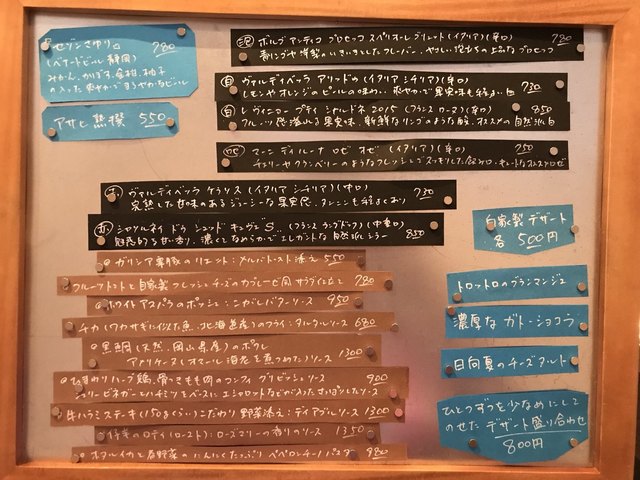 セゾンさゆり 780
(ベアードビール 静岡)
みかん、かぼす、金柑、柚子
の入った爽やかでまろやかなビール
アサヒ 熟撰 550
泡 ボルゴ アンティコ プロセッコ スペリオーレ ブリュット (イタリア) (辛口) 780
青リンゴや 洋梨の いきいきとしたフレーバー、やさしい泡立ちの上品な プロセッコ
白 ヴァルディベッラ アリードの (イタリア シチリア) (辛口)
レモンや オレンジの ピールの味わい 爽やかで 果実味も 白 730
白 レ ヴィニョー プティ シャルドネ 2015 (フランス ローヌ) (辛口) 850
フルーツ感溢れる 果実味、新鮮なリンゴのような酸、オススメの自然派 白
ロゼ マーニ ディルーナ ロゼ (イタリア) (辛口) 750
チェリーや クランベリーのような フレッシュで スッキリした飲み口、キュートなオススメロゼ
赤 ヴァルディベッラ ケラソス (イタリア シチリア) (中口) 750
完熟した甘味のある ジューシーな 果実感、タンニンも
赤 ドゥ キュヴェS. (フランス ラングドック) (中重口)
魅惑的な 甘い香り、濃くて なめらかで エレガントな 自然派 850
◎ガリシア栗豚の リエット:メルバトースト添え 550
フルーツトマトと自家製 フレッシュチーズのカプレーゼ風 サラダ仕立て 780
ホワイトアスパラの ポッシェ:こがしバターソース 950
チカ(ワカサギに似た魚、北海道産)のフライ:タルタルソース 680
◎黒鯛(天然、岡山県産)のポワレ
アメリケーヌ(オマール海老を煮つめた)ソース 1300
◎ひまわりハーブ鶏、骨つきもも肉のコンフィ グリビッシュソース 900
シェリービネガーとハチミツをベースに エシャロットなどが入った さっぱりしたソース
◎牛ハラミステーキ (150gくらい) こだわり 野菜添え:ディアブルソース 1300
仔羊のロティ(ロースト):ローズマリーの香りのソース 1350
◎ホタルイカと春野菜の にんにくたっぷり ペペロンチーノパスタ 980
自家製 デザート
各 500円
トロットロの ブランマンジェ
濃厚な ガトーショコラ
日向夏の チーズタルト
ひとつずつを 少なめにして
のせた デザート盛り合わせ
800円